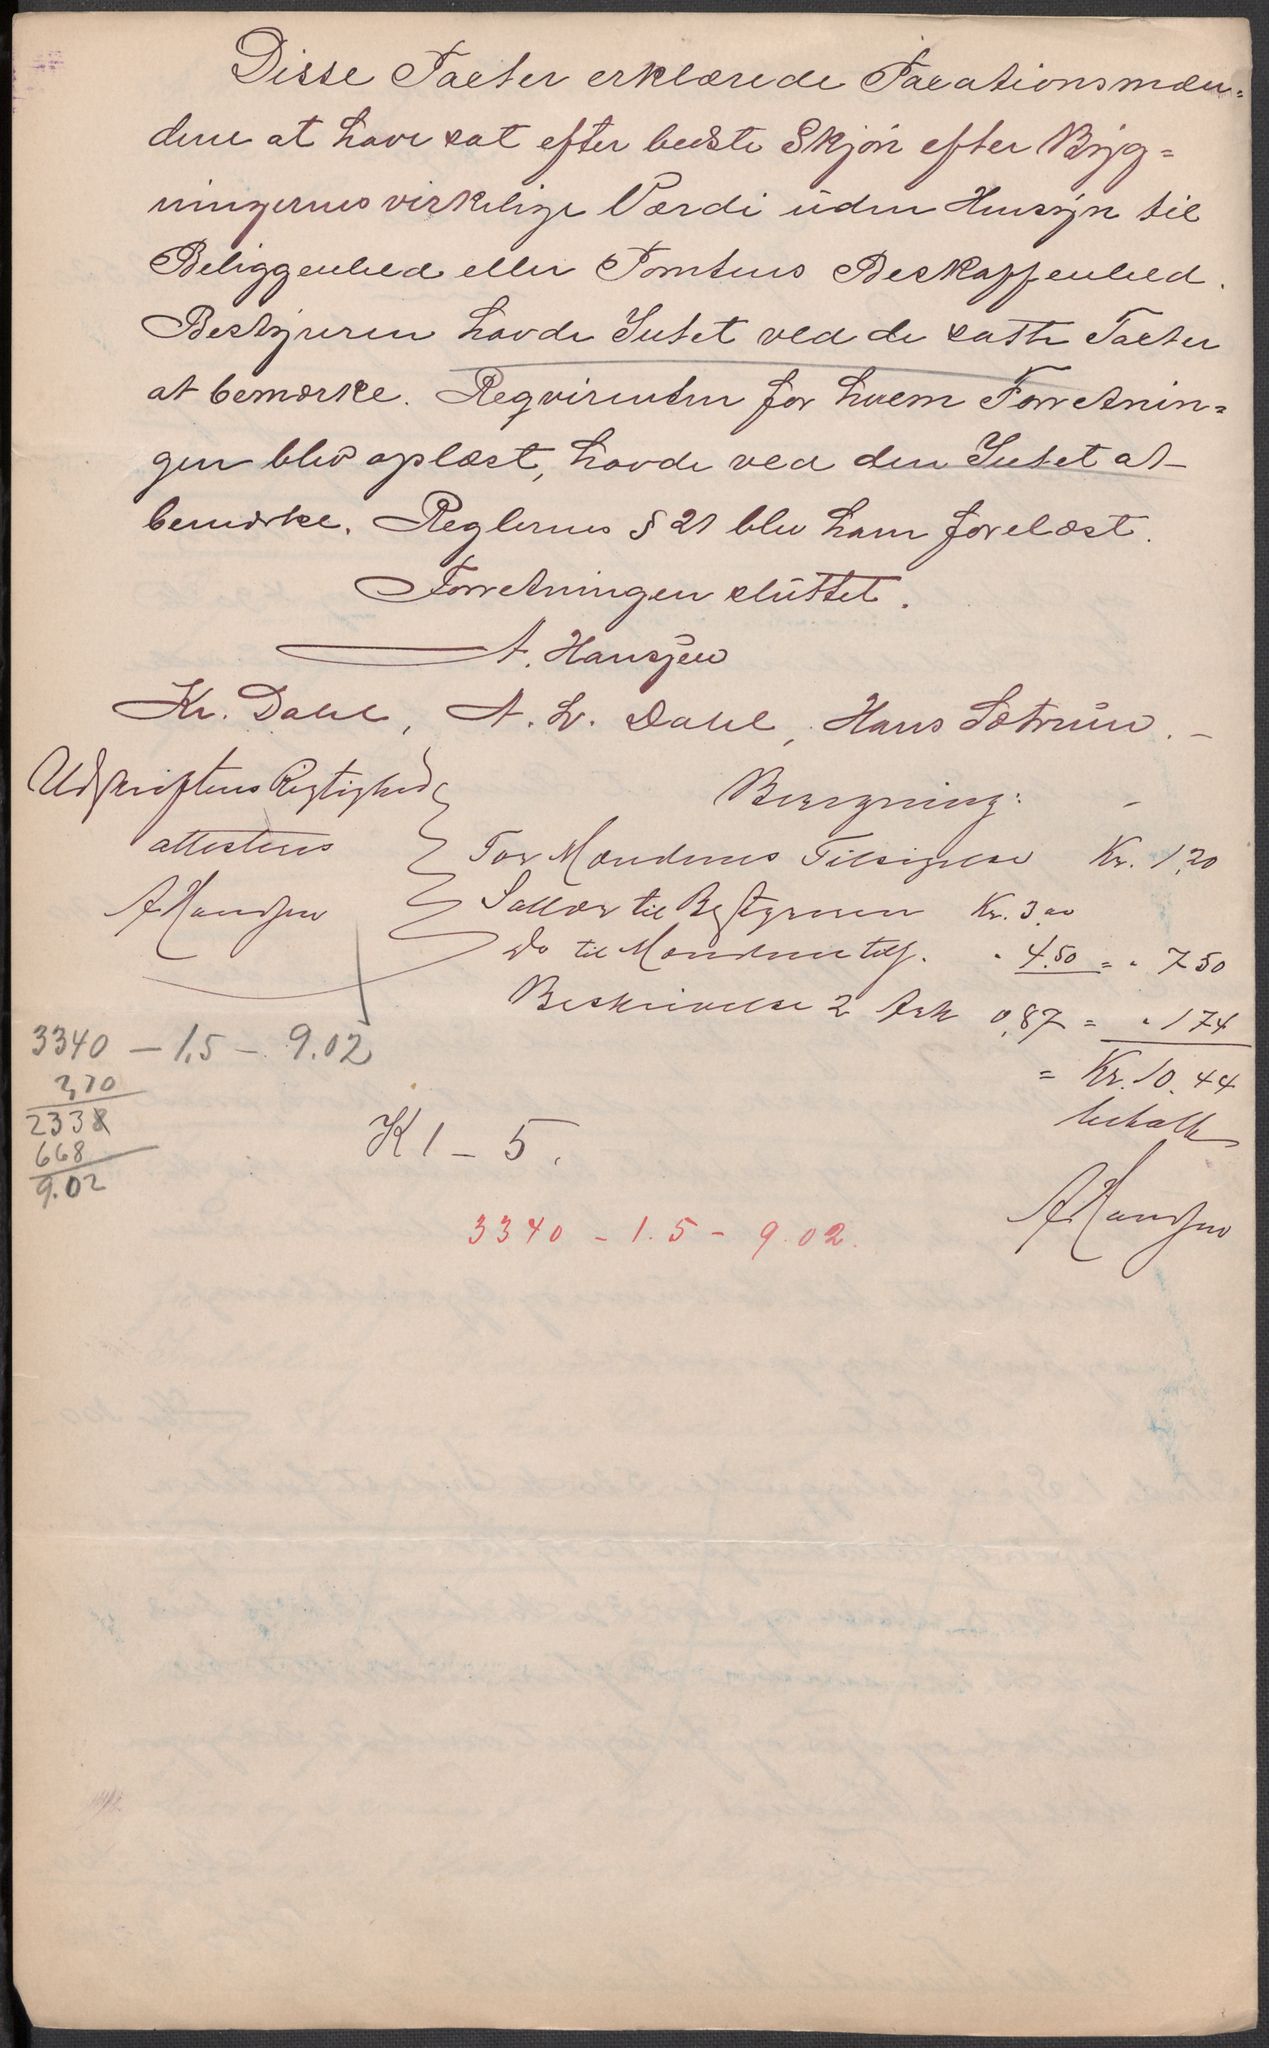 Disse Taxter erklærede Taxationsmæn=
dene at have sat efter bedste Skjøn efter Byg=
ningernes virkelige Værdi uden Hensyn til
Beliggenhed eller Tomtens Beskaffenhed.
Bestyreren havde Intet ved de satte Taxter
at bemærke. Reqvirenten for hvem Forretnin=
gen blev oplæst, havde ved den Intet at
bemærke. Reglernes § 21 blev ham forelæst.
Forretningen sluttet.
A. Hansen
Kr. Dahl, A. L. Dahl, Hans Sætrum. –
Udskriftens Rigtighed
attesteres
AHansen
Beregning:
For Mændenes Tilsigelse Kr. 1,20
Sallær til Bestyreren Kr. 3,00
Do til Mændene tils. " 4.50 = " 7.50
Beskrivelse 2 Ark 0,87 = " 1 74
= Kr. 10.44
betalt
AHansen
3340 – 1.5 – 9.02
2338
668
9.02
K 1 – 5.
3340 – 1.5 – 9.02.